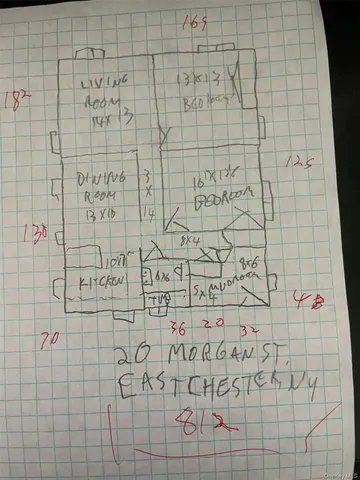 169
182
LIVING
ROOM
14 X 13
13 X 13
BEDROOM
125
DINING
ROOM
13 X 10
3
X
14
BEDROOM
130
8X4
KITCHEN
6X6
TUB
8X6
MUDROOM
5X4
70
36
20
32
20 MORGAN ST.
EASTCHESTER, NY
812